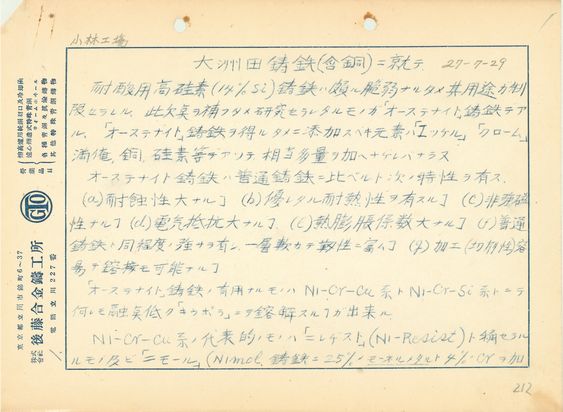 小林工場
大洲田鋳鉄(含銅)ニ就テ 27-7-29
耐酸用高硅素(14% Si)鋳鉄ハ頗ル脆弱ナルタメ其用途ガ制
限セラルル。此欠点ヲ補フタメ研究セラレタルモノガ「オーステナイト」鋳鉄デア
ル。「オーステナイト」鋳鉄ヲ得ルタメニ添加スベキ元素ハ「ニッケル」「クローム」
満俺、銅、硅素等デアリテ相当多量ヲ加ヘナケレバナラヌ
オーステナイト鋳鉄ハ普通鋳鉄ニ比ベルト次ノ特性ヲ有ス.
(a)耐蝕性大ナル」 (b)優レタル耐熱性ヲ有スル」 (c)非磁
性ナル」 (d)電気抵抗大ナル」 (e)熱膨脹係数大ナル」 (f)普通
鋳鉄ト同程度ノ強サヲ有シ、一層軟カデ靱性ニ富ム」 (g)加工(切削性)容
易デ熔接モ可能ナル」
「オーステナイト」鋳鉄ノ有用ナルモノハ Ni-Cr-Cu系ト Ni-Cr-Si系トニテ
何レモ融点低ク「キュポラ」ニテ熔解スルヿガ出来ル
Ni-Cr-Cu系ノ代表的ノモノハ「ニレヂスト」(Ni-Resist)ト稱セラル
ルモノ及ビ「ニモール」(Nimol 鋳鉄=25%モーネルメタルト4% Crヲ加
212
営業品目
GTO
株式会社 後藤合金鑄工所
東京都立川市錦町6~37
電話立川227番